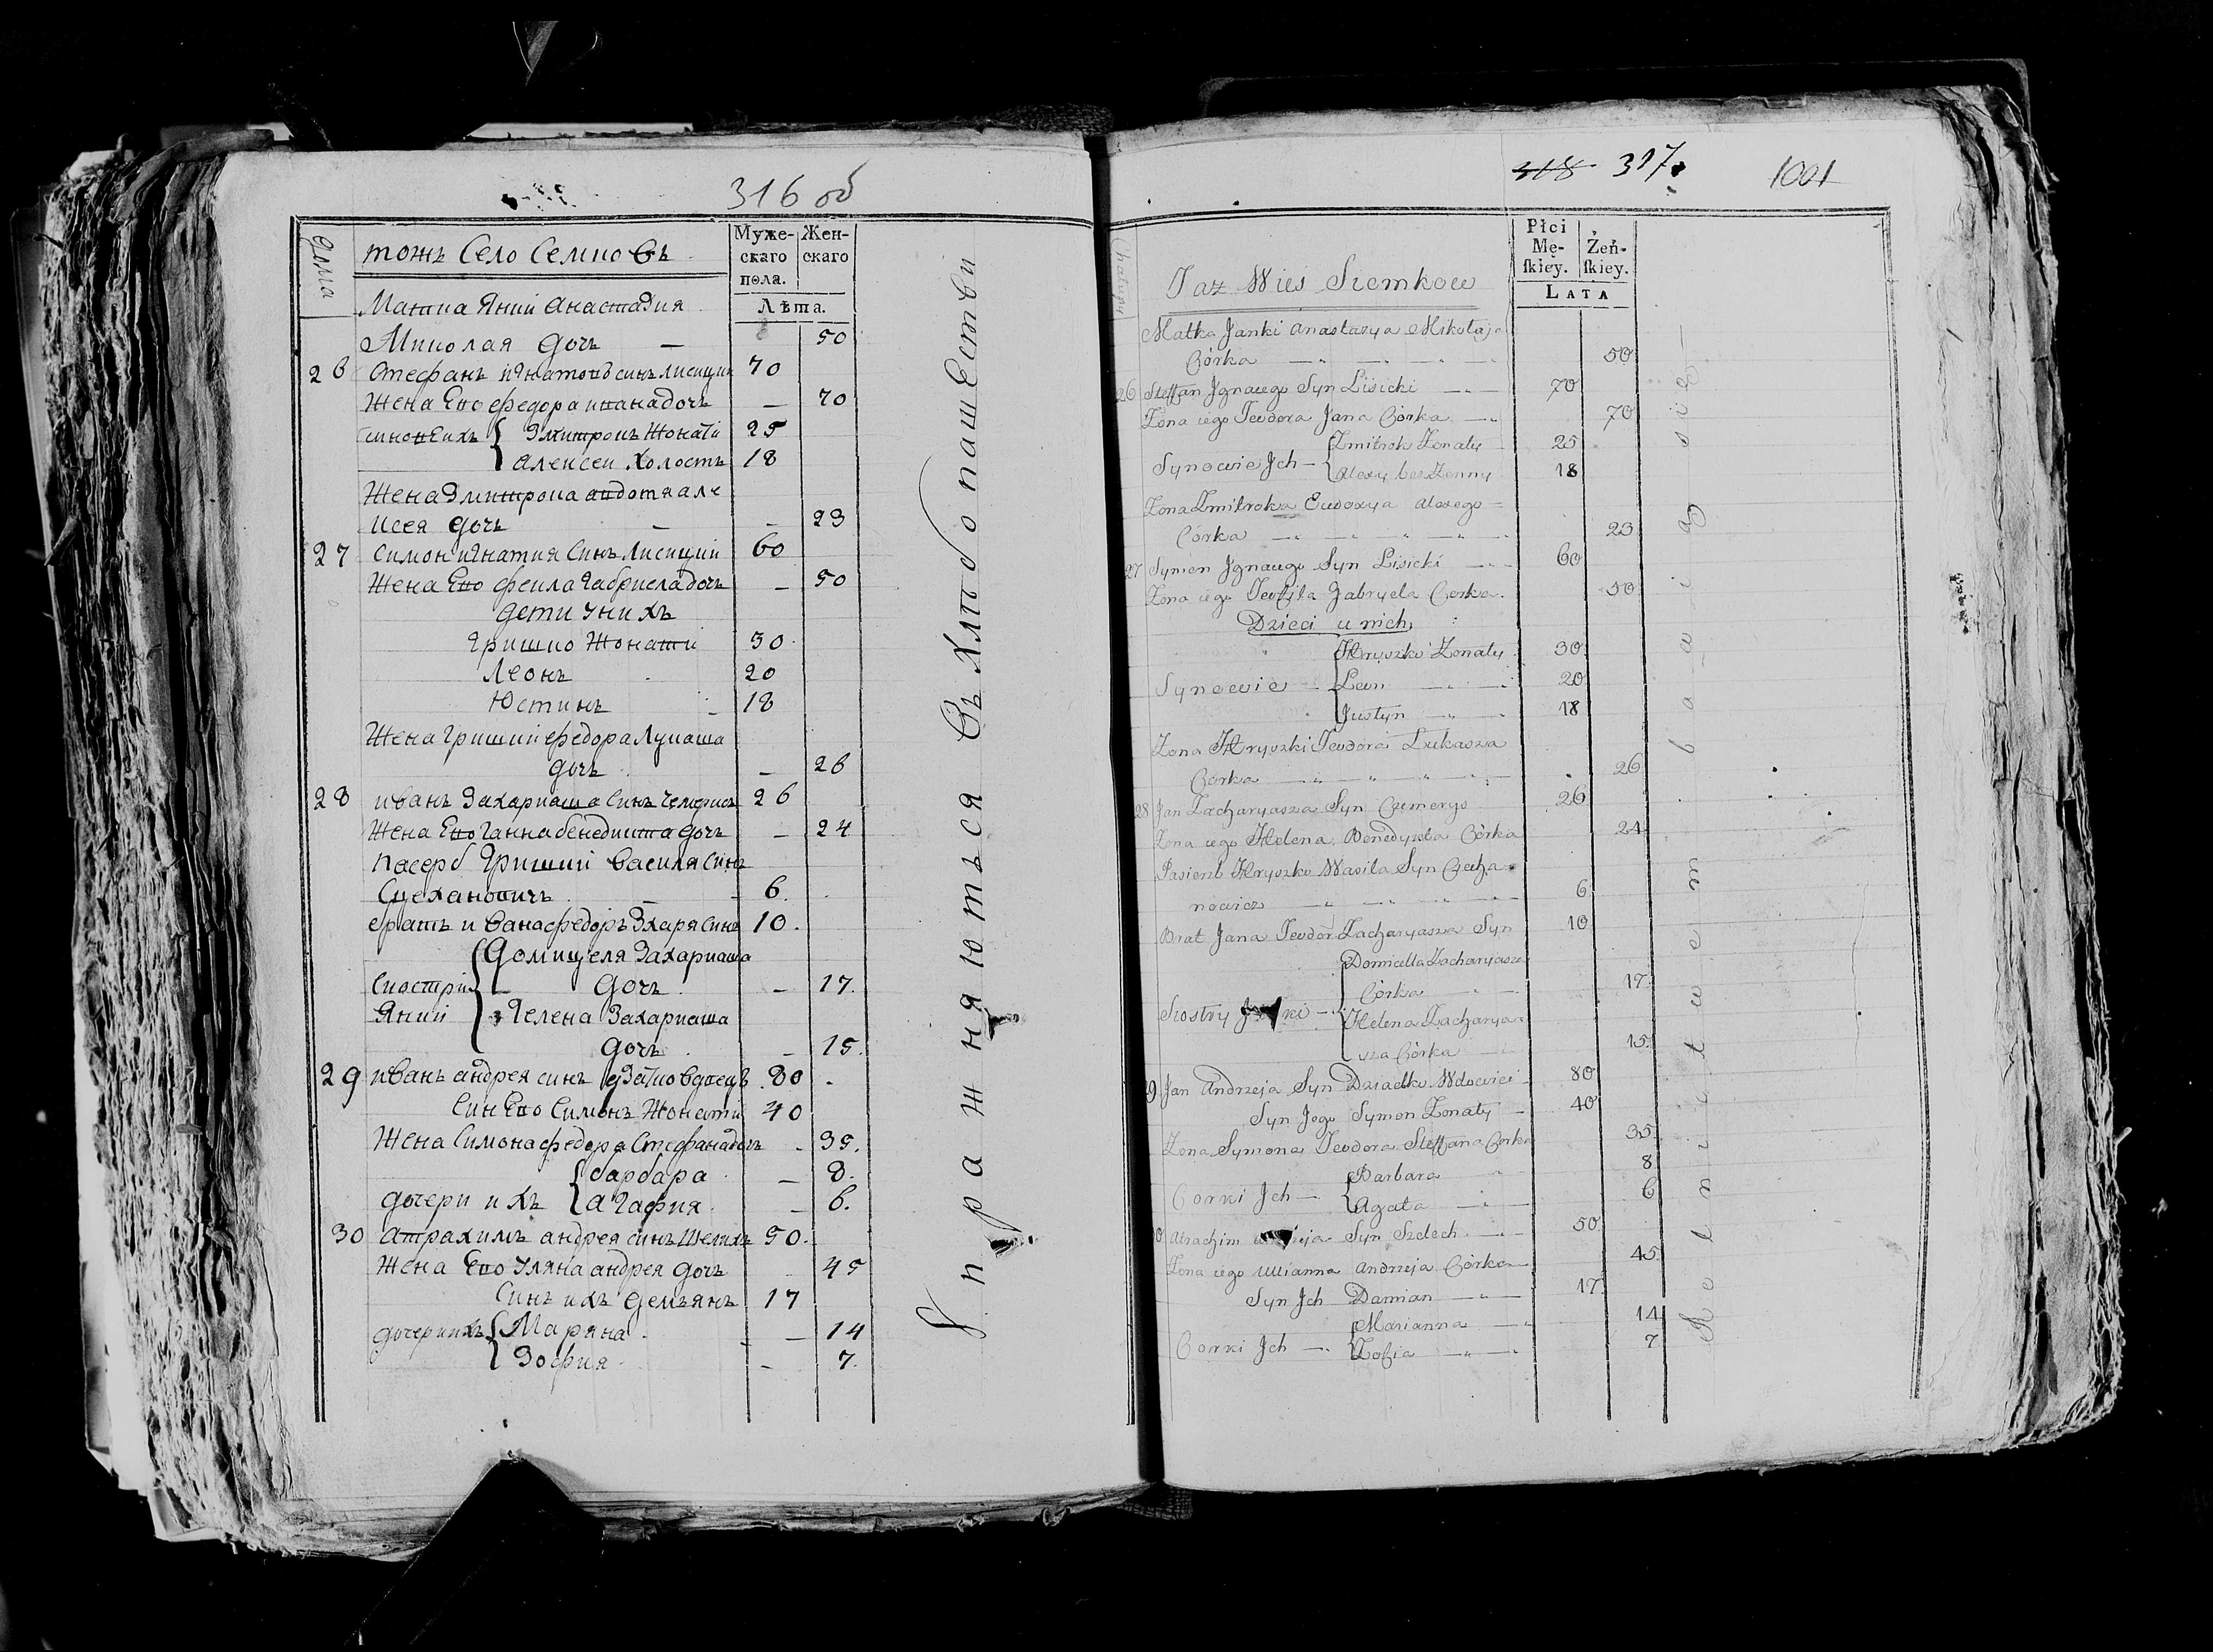 316 об
Дома
тожъ Село Семковъ
Муже-
скаго
пола.
Жен-
скаго
Лѣта.
Матка Янки Анастазия
Миколая дочь — 50
26 Стефанъ игнатовъ синъ лисицки 70
Жена Его федора ивана дочъ — 70
синове ихъ { Змитрокъ Жонати 25
Алексеи Холостъ 18
Жена Змитрока авдотя але
ксея дочь — — 23
27 Симон игнатия Синъ Лисицки 60
Жена Его феила Габриела дочь — 50
дети у них
Гришко Жонати 30
Леонъ 20
Юстинъ 18
Жена Гришки федора Лукаша
дочь — 26
28 иванъ Захариаша Синъ Чемерисъ 26
Жена Его Ганна бенедикта дочь — 24
пасерб Гришки Василя Синъ
Сцехановичъ 6.
братъ ивана федоръ Зхаря Синъ 10.
Сиостри Янки { Домицеля Захариаша
дочь — 17.
Гелена Захариаша
дочь — 15.
29 иванъ андрея синъ дзатко вдовецъ 80
Син Его Симонъ Жонати 40
Жена Симона федора Стефана дочъ — 35.
дочери ихъ { барбара — 8.
агафия — 6.
30 атрахимъ андрея синъ шелехъ 50.
Жена Его Уляна андрея дочь 45
Синъ ихъ демъянъ 17
дочери ихъ { Маряна — 14
Зофия — 7.
Упражняются Въ Хлѣбопашествѣ
318 317.
1001
Chałupy
Taż Wieś Siemkow
Płci
Mę-
ſkiey.
Żeń-
ſkiey.
LATA
Matka Janki Anastazya Mikołaja
Córka 50
26 Steffan Jgnacego Syn Lisicki 70
Zona iego Teodora Jana Córka 70
Synowie Jch { Zmitrok Zonaty 25
Alexy bez Zenny 18
Zona Zmitroka Eudoxya Alexego
Córka 23
27 Symon Jgnacego Syn Lisicki 60
Zona iego Teofila Gabryela Corka 50
Dzieci u nich
Synowie { Hryszko Zonaty 30
Leon 20
Justyn 18
Zona Hryszki Teodora Lukasza
Córka 26
28 Jan Zacharyasza Syn Czemerys 26
Zona iego Helena Benedykta Córka 24
Pasierb Hryszko Wasila Syn Czecha
nowicz 6
Brat Jana Teodor Zacharyasza Syn 10
Siostry Janki { Domicella Zacharyasza
Córka 17
Helena Zacharya
sza Córka 15
29 Jan Andrzeja Syn Dziadko Wdowiei 80
Syn Jego Symon Zonaty 40
Zona Symona Teodora Steffana Corka 35
Corki Jch { Barbara 8
Agata 6
Atrachim Syn Szelech 50
Zona iego Ullianna Andrzeja Córka 45
Syn Jch Damian 17
Corki Jch { Marianna 14
Zofia 7
Rolnictwem bawią się